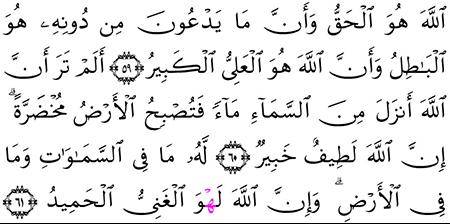 ٱللَّهَ هُوَ ٱلْحَقُّ وَأَنَّ مَا يَدْعُونَ مِن دُونِهِۦ هُوَ
ٱلْبَـٰطِلُ وَأَنَّ ٱللَّهَ هُوَ ٱلْعَلِىُّ ٱلْكَبِيرُ ﴿٥٩﴾ أَلَمْ تَرَ أَنَّ
ٱللَّهَ أَنزَلَ مِنَ ٱلسَّمَآءِ مَآءً فَتُصْبِحُ ٱلْأَرْضُ مُخْضَرَّةً ۗ
إِنَّ ٱللَّهَ لَطِيفٌ خَبِيرٌ ﴿٦٠﴾ لَّهُۥ مَا فِى ٱلسَّمَـٰوَٰتِ وَمَا
فِى ٱلْأَرْضِ ۗ وَإِنَّ ٱللَّهَ لَهُوَ ٱلْغَنِىُّ ٱلْحَمِيدُ ﴿٦١﴾